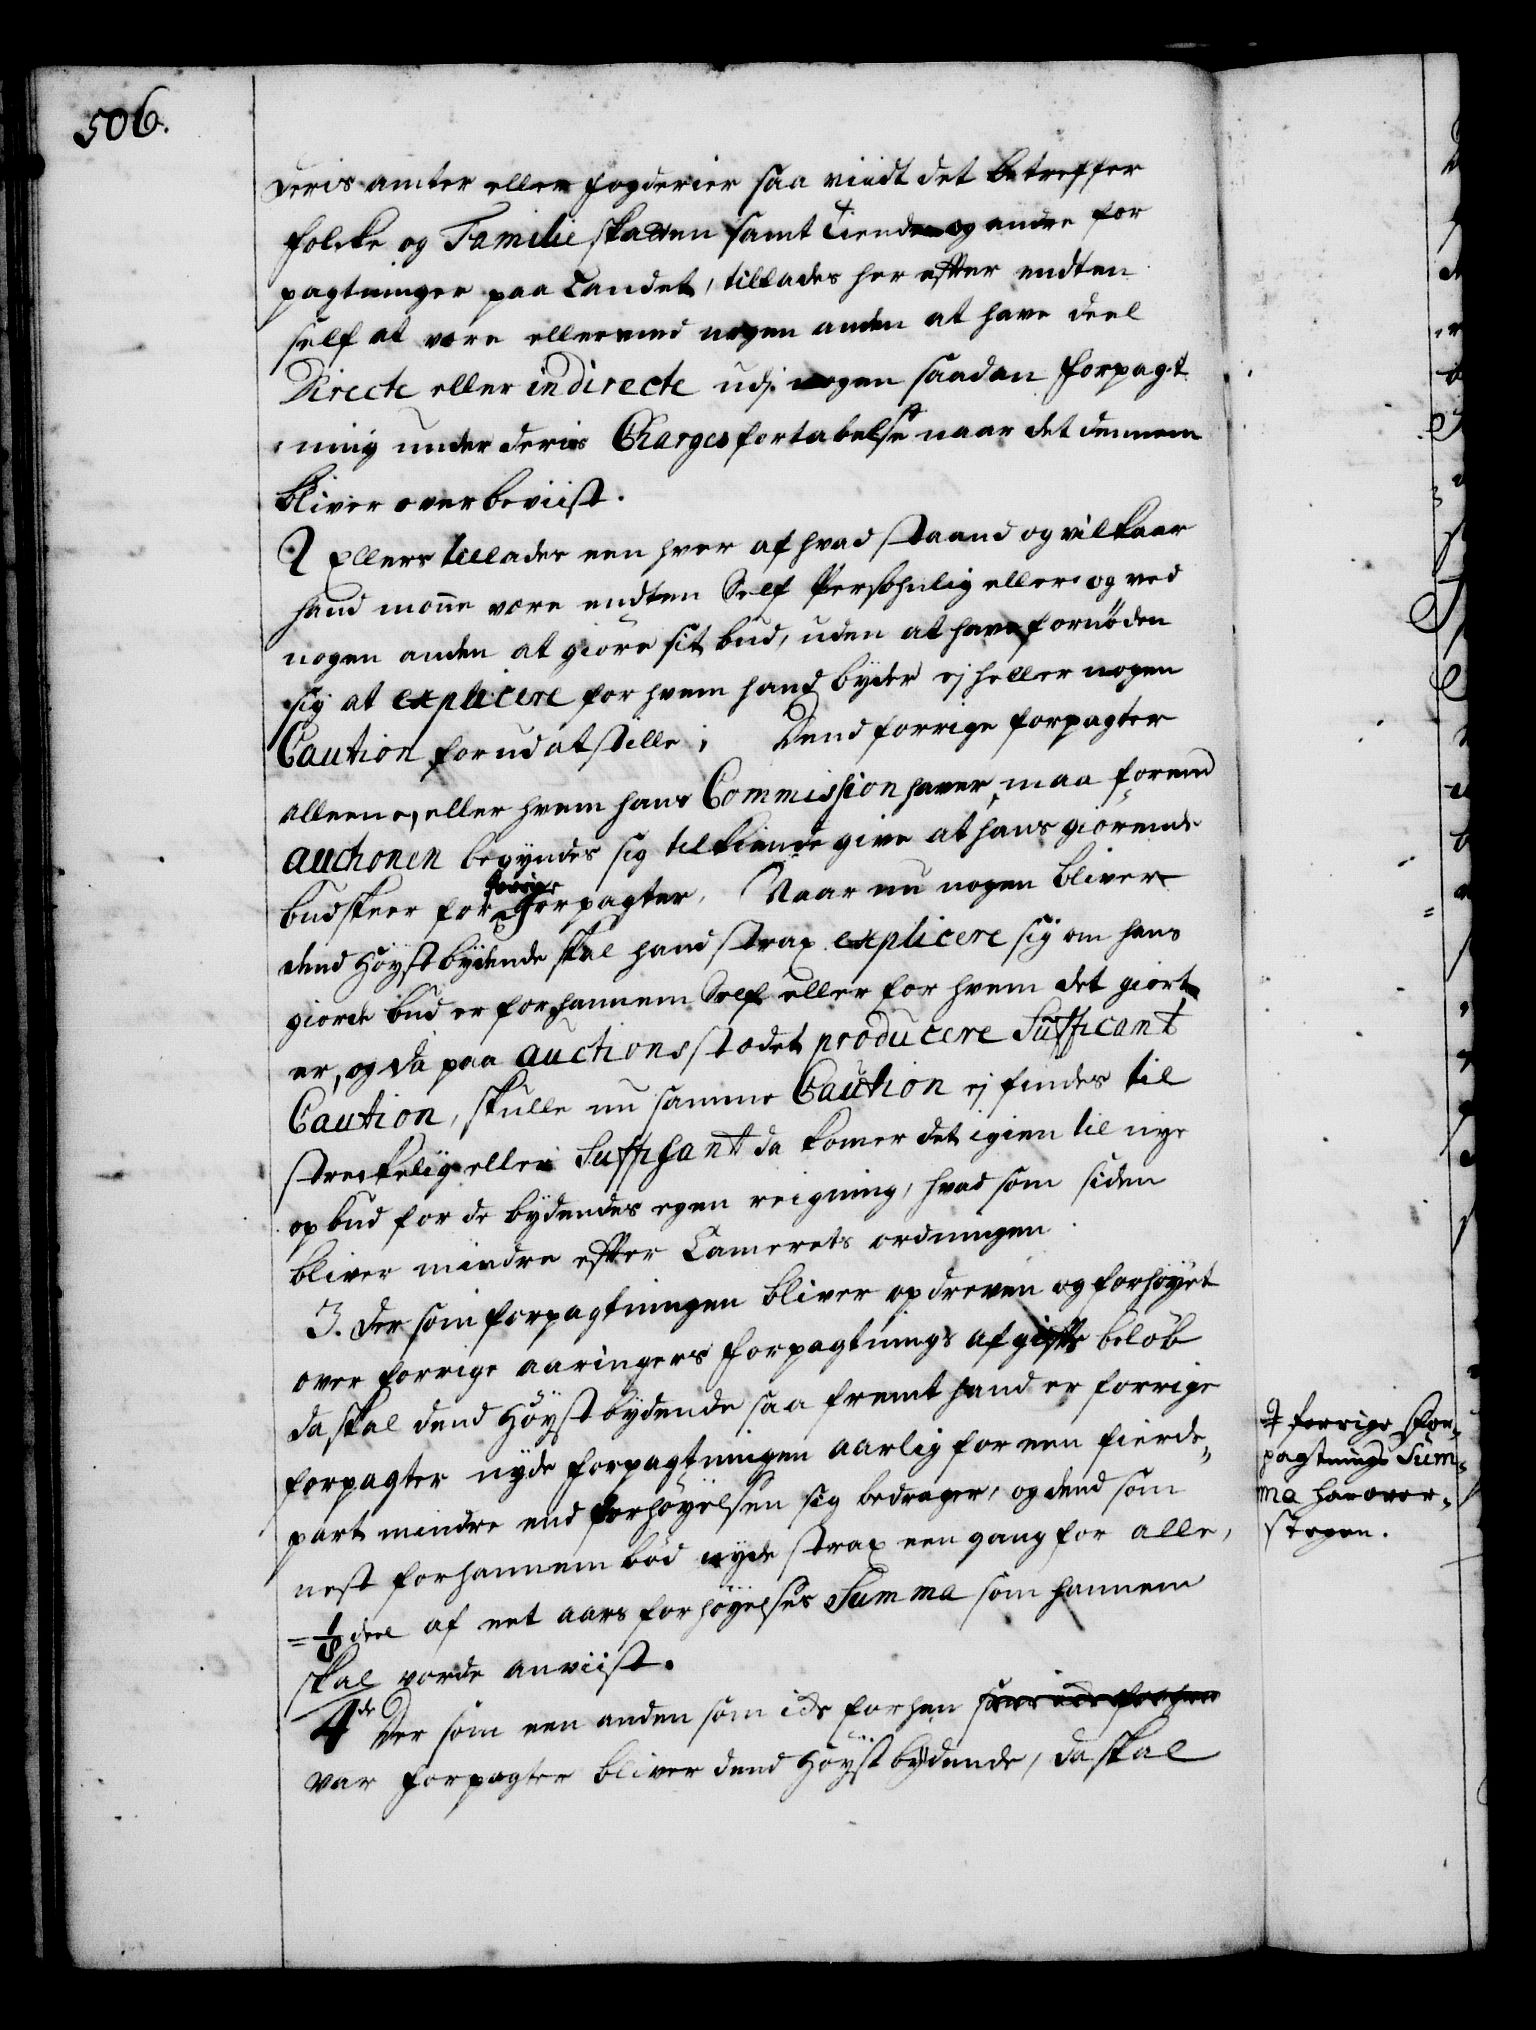 506.
deris amter eller fogderier saa viidt det betreffer
folcke og Familie skatten samt Tiende og andre for
pagtninger paa Landet, tillades her efter endten
self at være eller med nogen anden at have deel
Directe eller indirecte udj nogen saadan forpagt
ning under deris Charges fortabelse naar det dennem
bliver overbeviist.
2 Ellers tillades een hver af hvad staand og vilkaar
hand monne være endten Self Persohnlig eller og ved
nogen anden at giøre sit bud, uden at have fornøden
sig at explicere for hvem hand byder ej heller nogen
Caution forud at stille; Dend forrige forpagter
alleene, eller hvem hans Commission haver, maa førend
auctionen begyndes sig tilkiende give at hans giørende
bud skeer for forrige Forpagter. Naar nu nogen bliver
dend Høystbydende skal hand strax explicere sig om hans
giorde bud er for hannem Self eller for hvem det giort
er, og da paa auctions stædet producere Sufficant
Caution, skulle nu samme Caution ej findes til
streckelig eller Suffisant da komer det igien til nye
opbud for de bydendes egen reigning, hvad som siden
bliver mindre efter Camerets ordningen.
3. Der som forpagtningen bliver opdreven og forhøyet
over forrige aaringers forpagtnings afgifts beløb
da skal dend Høyst bydende saa fremt hand er forrige
forpagter nyde forpagtningen aarlig for een fierde„
part mindre end forhøyelsen sig bedrager, og dend som
nest for hannem bød nyde strax een gang for alle,
= 1/8 deel af eet aars forhøyelses Summa som hannem
skal vorde anviist.
4de Der som een anden som icke forhen som icke forhen
var forpagter bliver dend Høyst bydende, da skal
forrige For„
pagtnings Sum„
ma har over„
stegen.